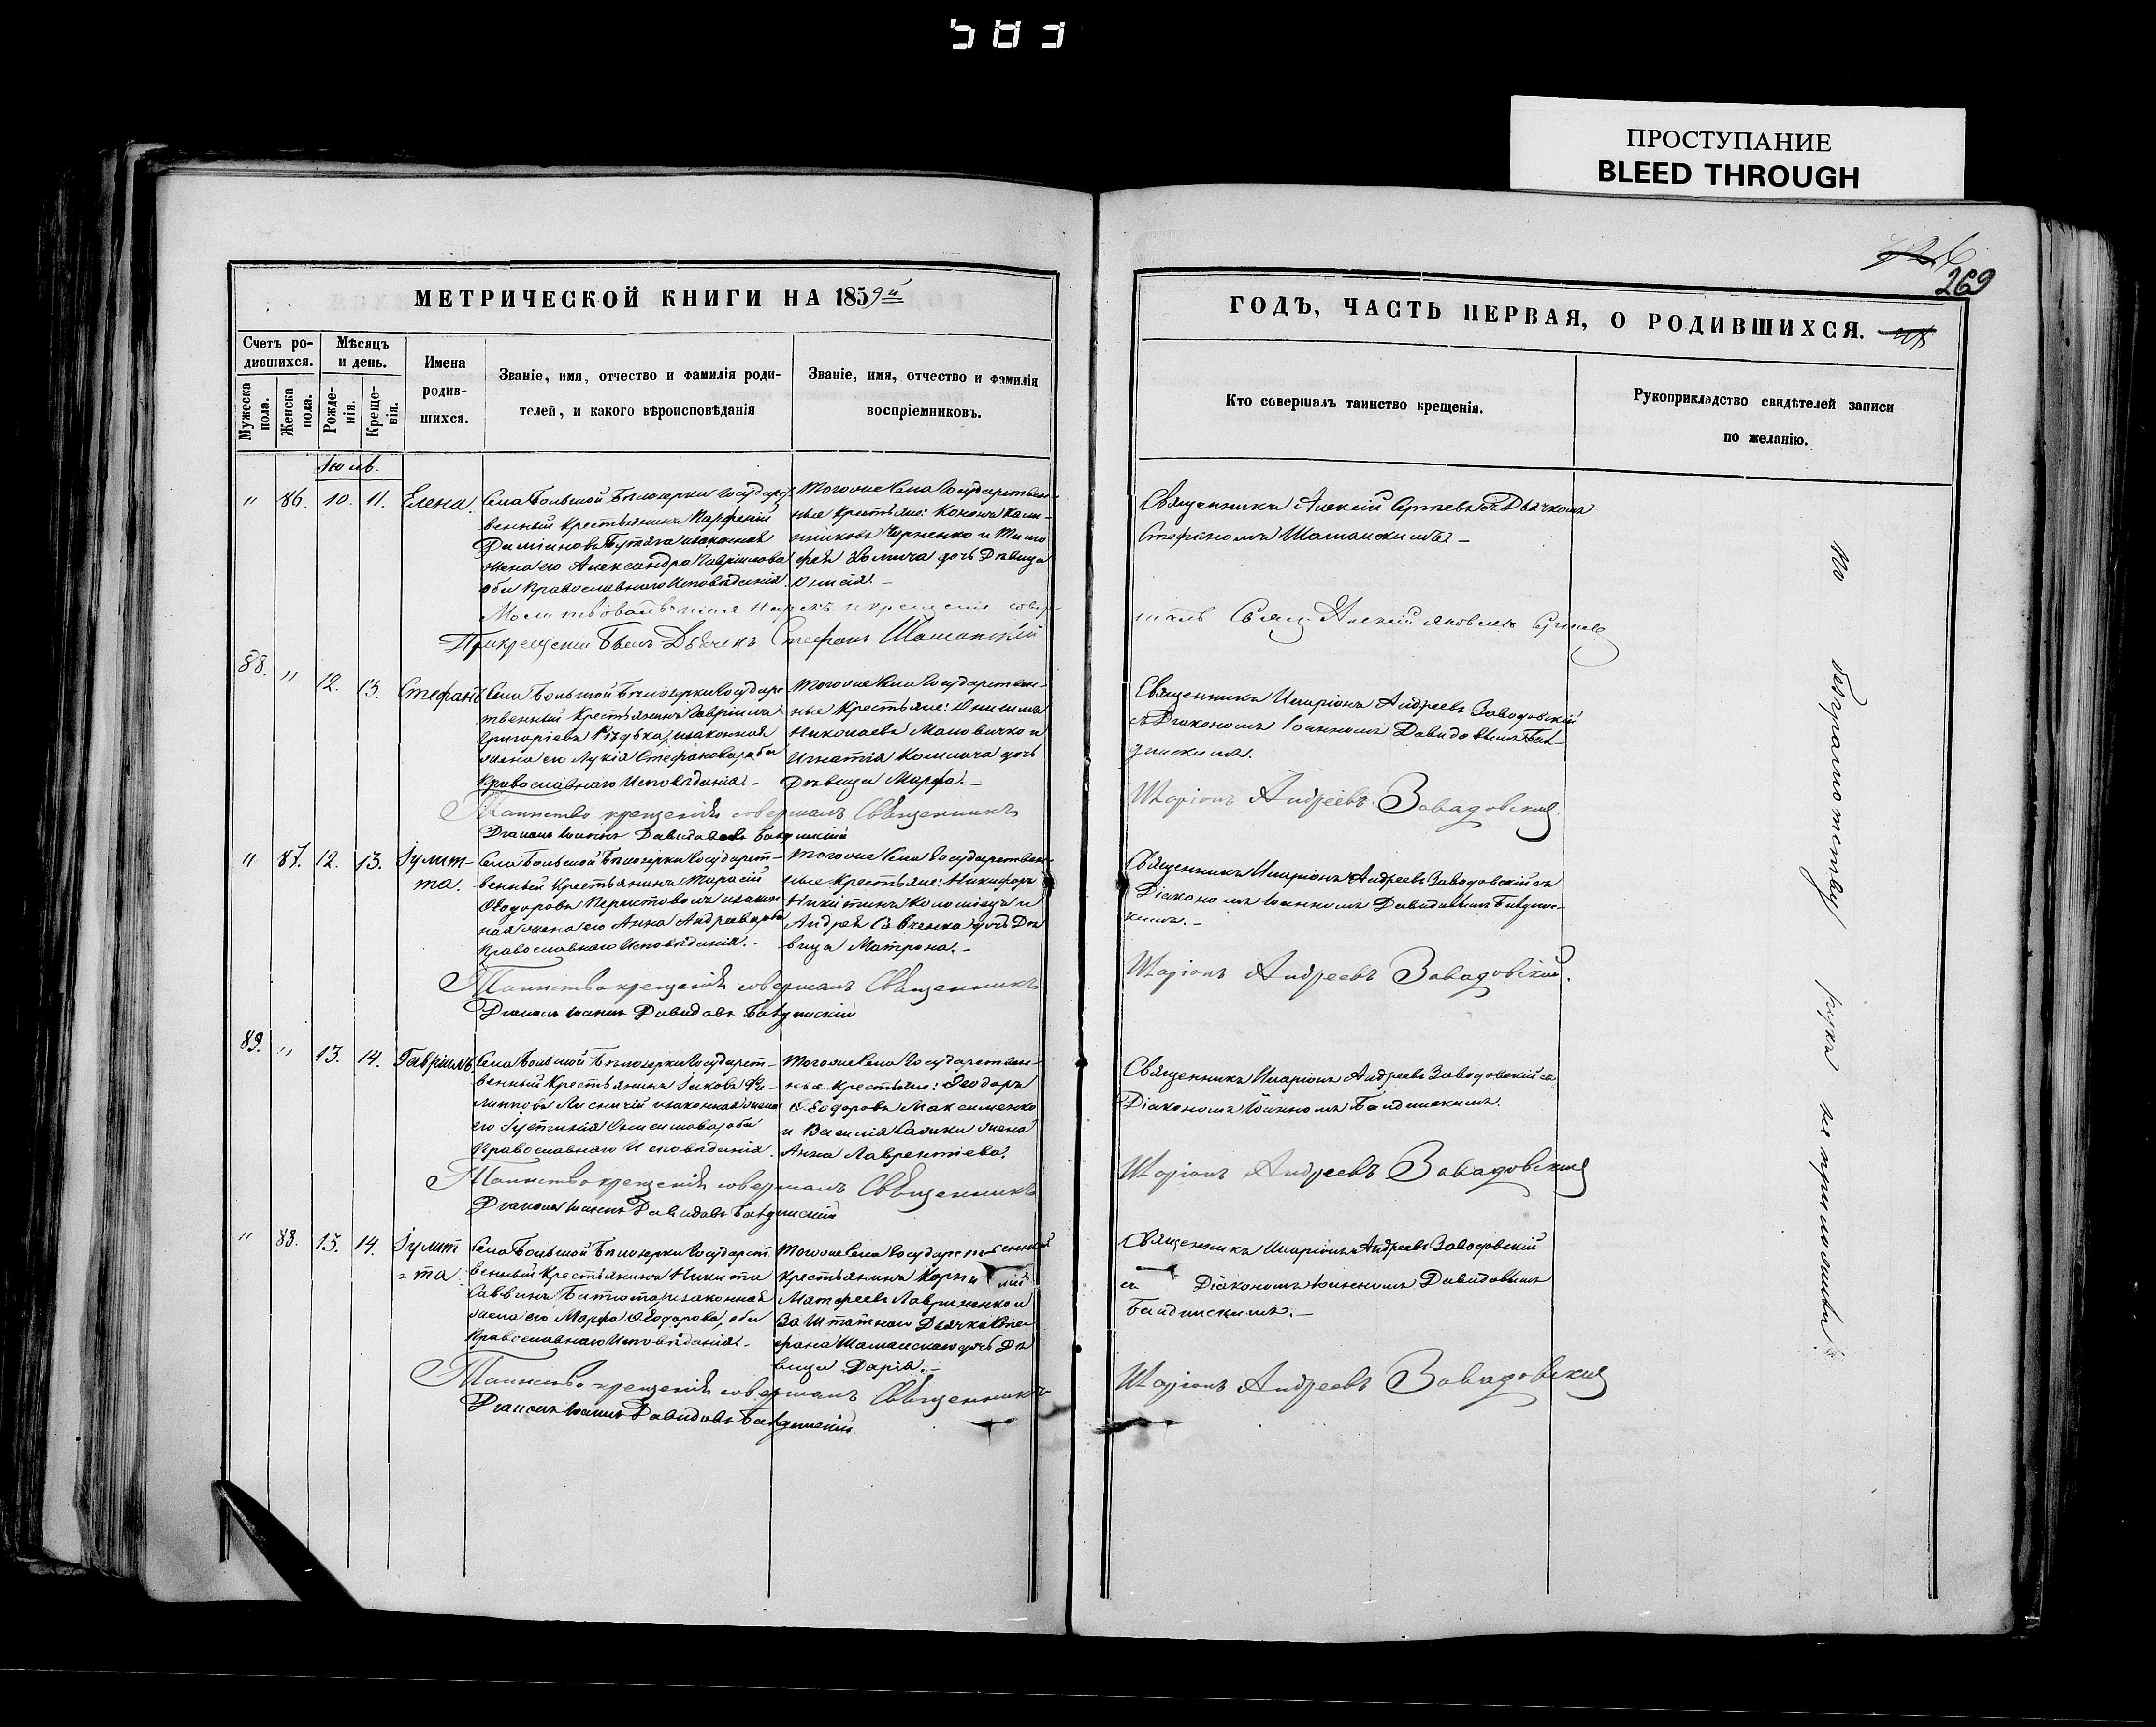 583
ПРОСТУПАНИЕ
BLEED THROUGH
269
МЕТРИЧЕСКОЙ КНИГИ НА 1859й
Счетъ ро-
дившихся.
Мужеска пола.
Женска пола.
Мѣсяцъ
и день.
Рожде-
нія.
Креще-
нія.
Имена
родив-
шихся.
Званіе, имя, отчество и фамилія роди-
телей, и какого вѣроисповѣданія
Званіе, имя, отчество и фамилія
воспріемниковъ.
ГОДЪ, ЧАСТЬ ПЕРВАЯ, О РОДИВШИХСЯ.
Кто совершалъ таинство крещенія.
Рукоприкладство свидѣтелей записи
по желанію.
Іюль.
" 86. 10. 11. Елена.
Села Большой Бѣлозерки Государст
венный крестьянинъ Парфеній
Даміановъ и законная
жена его Александра Гавріилова
оба Православнаго Исповѣданія.
Того же Села Государствен-
ные крестьяне: Кононъ Кали-
никовъ Чорненко и Тимо
фея Хомича дочь Дѣвица
Священникъ Алексій Сергѣевъ съ Дьячкомъ
Стефаномъ Шошанскимъ
Молитвовалъ имя нарекъ и крещеніе совер-
шалъ Свящ. Алексій
При крещеніи былъ Дьячекъ Стефанъ Шошанскій
88. " 12. 13. Стефанъ
Села Большой Бѣлозерки Государс
твенный Крестьянинъ Гавріилъ
Григоріевъ Рѣдька, и законная
жена его Лукія Стефанова, оба
Православнаго Исповѣданія.
Того же Села Государствен-
ные Крестьяне: Онисимъ
Николаевъ Маловичко и
Игнатія Комлича дочь
Дѣвица Марфа.
Священникъ Иларіонъ Андреевъ Заводовскій
съ Діакономъ Іоанномъ Давидовымъ Бай-
Таинство крещенія совершалъ Священникъ
Иларіонъ Андреевъ Завадовский
Діаконъ Іоаннъ Давидовъ
" 87. 12. 13. Іулит-
та.
Села Большой Бѣлозерки Государст-
венный Крестьянинъ Тарасій
Ѳеодоровъ и закон
ная жена его Анна Андреева, оба
Православнаго Исповѣданія.
Того же Села Государствен-
ные Крестьяне: Никифоръ
Никитинъ Коломіецъ и
Андрея Савченка дочь Дѣ
вица Матрона.
Священникъ Иларіонъ Андреевъ Заводовскій съ
Діакономъ Іоанномъ Давидовымъ
Таинство крещенія совершалъ Священникъ
Иларіонъ Андреевъ Завадовскій.
Діаконъ Іоаннъ Давидовъ
89. " 13. 14. Гавріилъ.
Села Большой Бѣлозерки Государст-
венный Крестьянинъ Іаковъ Фи-
липповъ Лисничій и законная жена
его Іустинія Онисимова, оба
Православнаго Исповѣданія.
Того же Села Государствен-
ные крестьяне: Ѳеодоръ
Ѳеодоровъ Максименко
и Василія жена
Анна Лаврентіева.
Священникъ Иларіонъ Андреевъ Заводовскій съ
Діакономъ Іоанномъ
Таинство крещенія совершалъ Священникъ
Иларіонъ Андреевъ Завадовский
Діаконъ Іоаннъ Давидовъ
" 88. 13. 14. Іулит
та
Села Большой Бѣлозерки Государст
венный Крестьянинъ Никита
Саввинъ и законная
жена его Марфа Ѳеодорова, оба
Православнаго Исповѣданія.
Того же Села Государственный
крестьянинъ Корнилій
Матфеевъ Лавриненко и
Заштатнаго Дьячка Сте
фана Шошанскаго дочь Дѣ
вица Дарія.
Священникъ Иларіонъ Андреевъ Заводовскій
съ Діакономъ Іоанномъ Давидовымъ
Таинство крещенія совершалъ Священникъ
Иларіонъ Андреевъ Завадовский
Діаконъ Іоаннъ Давидовъ
по безграмотству руки не приложили.